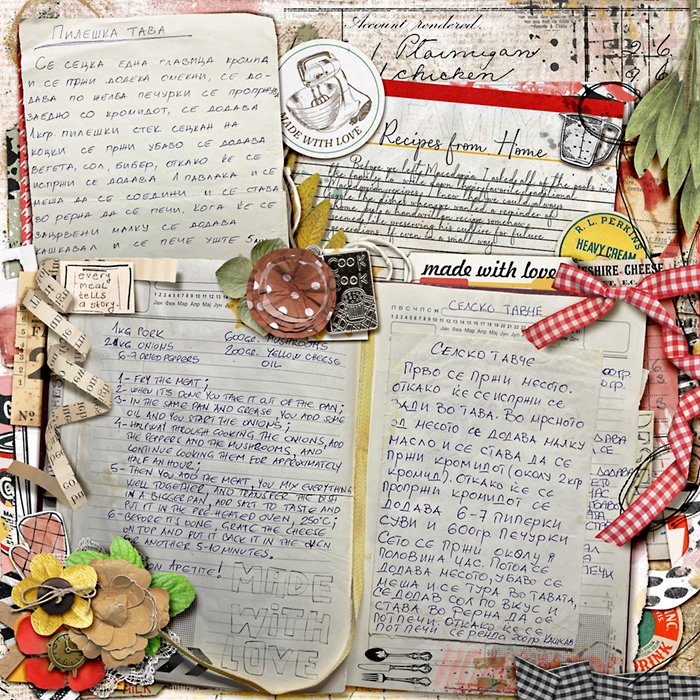 ПИЛЕШКА ТАВА
СЕ СЕЦКА ЕДНА ГЛАВИЦА КРОМИД
И СЕ ПРЖИ ДОДЕКА ОМЕКНИ, СЕ ДО-
ДАВА ПО ЖЕЛБА ПЕЧУРКИ СЕ ПРОПРЖ
ЗАЕДНО СО КРОМИДОТ, СЕ ДОДАВА
1 КГР ПИЛЕШКИ СТЕК СЕЦКАН НА
КОЦКИ СЕ ПРЖИ УБАВО СЕ ДОДАВА
ВЕГЕТА, СОЛ, БИБЕР, ОТКАКО ЌЕ СЕ
ИСПРЖИ СЕ ДОДАВА 1 ПАВЛАКА И СЕ
МЕША ДА СЕ СОЕДИНИ И СЕ СТАВА
ВО РЕРНА ДА СЕ ПЕЧИ. КОГА ЌЕ СЕ
ЗАЦРВЕНИ МАЛКУ СЕ ДОДАВА
КАШКАВАЛ И СЕ ПЕЧЕ УШТЕ 5
MADE WITH LOVE
Account rendered,
Ptarmigan
chicken
Recipes from Home
Before we left Macedonia I asked all
the families to write down their favorite traditional
Macedonian recipes
generations. Even in a small way.
R. L. PERKINS
HEAVY CREAM
made with love
SHIRE-CHEESE
every
meal
tells
a story.
COOK BOOK
1 KG PORK
2 KG ONIONS
6-7 DRIED PEPPERS
600GR. MUSHROOMS
200GR. YELLOW CHEESE
OIL
1- FRY THE MEAT;
2- WHEN IT'S DONE YOU TAKE IT OUT OF THE PAN;
3- IN THE SAME PAN AND GREASE, YOU ADD SOME
OIL AND YOU START THE ONIONS;
4- HALFWAY THROUGH COOKING THE ONIONS, ADD
THE PEPPERS AND THE MUSHROOMS, AND
CONTINUE COOKING THEM FOR APPROXIMATELY
HALF AN HOUR;
5- THEN YOU ADD THE MEAT, YOU MIX EVERYTHING
WELL TOGETHER, AND TRANSFER THE DISH
IN A BIGGER PAN, ADD SALT TO TASTE AND
PUT IT IN THE PRE-HEATED OVEN, 250°C;
6- BEFORE IT'S DONE, GRATE THE CHEESE
ON TOP AND PUT IT BACK IN THE OVEN
FOR ANOTHER 5-10 MINUTES.
BON APETITE!
MADE
WITH
LOVE
СЕЛСКО ТАВЧЕ
Јан Фев Мар Апр Мај Јун
СЕЛСКО ТАВЧЕ
ПРВО СЕ ПРЖИ МЕСОТО.
ОТКАКО ЌЕ СЕ ИСПРЖИ СЕ
ВАДИ ВО ТАВА. ВО МРСНОТО
ОД МЕСОТО СЕ ДОДАВА МАЛКУ
МАСЛО И СЕ СТАВА ДА СЕ
ПРЖИ КРОМИДОТ (ОКОЛУ 2 КГР
КРОМИД). ОТКАКО ЌЕ СЕ
ПРОПРЖИ КРОМИДОТ СЕ
ДОДАВА 6-7 ПИПЕРКИ
СУВИ И 600ГР ПЕЧУРКИ
СЕТО СЕ ПРЖИ ОКОЛУ
ПОЛОВИНА ЧАС. ПОТОА СЕ
ДОДАВА МЕСОТО, УБАВО СЕ
МЕША И СЕ ТУРА ВО ТАВАТА,
СЕ ДОДАВ СОЛ ПО ВКУС И
СТАВА ВО РЕРНА ДА СЕ
ПОТПЕЧИ. ОТКАКО ЌЕ СЕ
ПОТПЕЧИ СЕ РЕНДА 200ГР. КАШКАВ